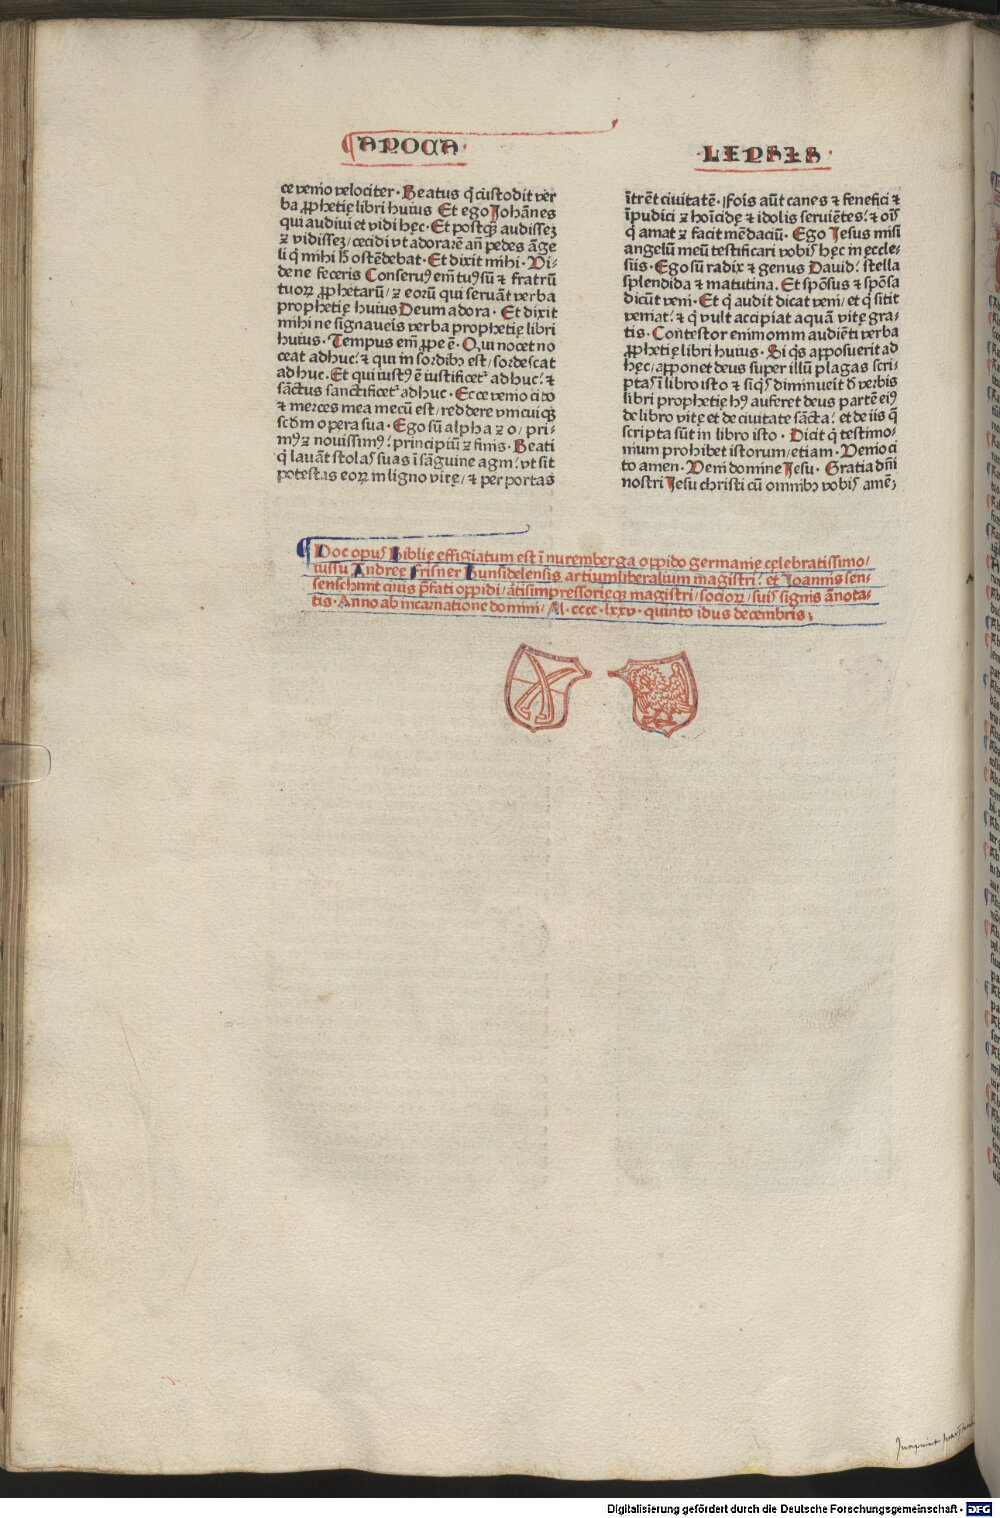 APOCA·
·LIPSIS·
ce venio velociter· Beatus q̄ custodit ver
ba ꝓphetię libri huius Et ego Johānes
qui audiui et vidi hęc· Et postꝗ̄ audissez
ꝛ vidissez/ cecidi vt adorarē añ pedes āge
li q̄ mihi h̄ ostēdebat· Et dixit mihi· Vi⸗
de ne feceris Conseruꝰ em̄ tuꝰ sū ⁊ fratrū
tuoꝝ ꝓphetarū/ ꝛ eorū qui seruāt verba
prophetię huius Deum adora· Et dixit
mihi ne signaueis verba prophetię libri
huius· Tempus em̄ ꝓpe ē· Qui nocet no
ceat adhuc: ⁊ qui in sordibꝫ est/ sordescat
adhuc· Et qui iustꝰ ē iustificet᷑ adhuc: ⁊
sāctus sanctificet᷑ adhuc· Ecce venio cito
⁊ merces mea mecū est/ reddere vnicuiqꝫ
scd̄m opera sua· Ego sū alpha ꝛ o/ pri⸗
mꝰ ꝛ nouissimꝰ: principiū ꝛ finis· Beati
q̄ lauāt stolas suas ī sāguine agni: vt sit
potestas eoꝝ in ligno vitę/ ⁊ per portas
ītrēt ciuitatē· Foīs aūt canes ⁊ venefici ⁊
īpudici ꝛ hoīcidę ⁊ idolis seruiētes: ⁊ oīs
q̄ amat ꝛ facit mēdaciū· Ego Jesus misi
angelū meū testificari vobis hęc in ęccle⸗
siis· Ego sū radix ⁊ genus Dauid: stella
splendida ⁊ matutina· Et spōsus ⁊ spōsa
dicūt veni· Et q̄ audit dicat veni/ et q̄ sitit
veniat: ⁊ q̄ vult accipiat aquā vitę gra⸗
tis· Contestor enim omni audiēti verba
ꝓphetię libri huius· Si qͥs apposuerit ad
hęc/ apponet deus super illū plagas scri⸗
ptas ī libro isto ⁊ si qͥs diminueit d̄ verbis
libri prophetię hꝰ auferet deus partē eiꝰ
de libro vitę et de ciuitate sācta: et de iis q̄
scripta sūt in libro isto· Dicit q̄ testimo⸗
nium prohibet istorum/ etiam· Venio ci
to amen· Veni domine Jesu· Gratia dn̄i
nostri Jesu christi cū omnibꝫ vobis amē;
Hoc opus Biblię effigiatum est ī nuremberga oppido germanię cęlebratissimo/
iussu Andreę Frisner Bunsidelensis artium liberalium magistri: et Joannis sen⸗
senschmit ciuis p̄fati oppidi/ ātis impressorięqꝫ magistri/ socioꝝ/ suis signis ānota⸗
tis· Anno ab incarnatione domini/ M·cccc·lxxv· quinto idus decembris;
Digitalisierung gefördert durch die Deutsche Forschungsgemeinschaft - DFG